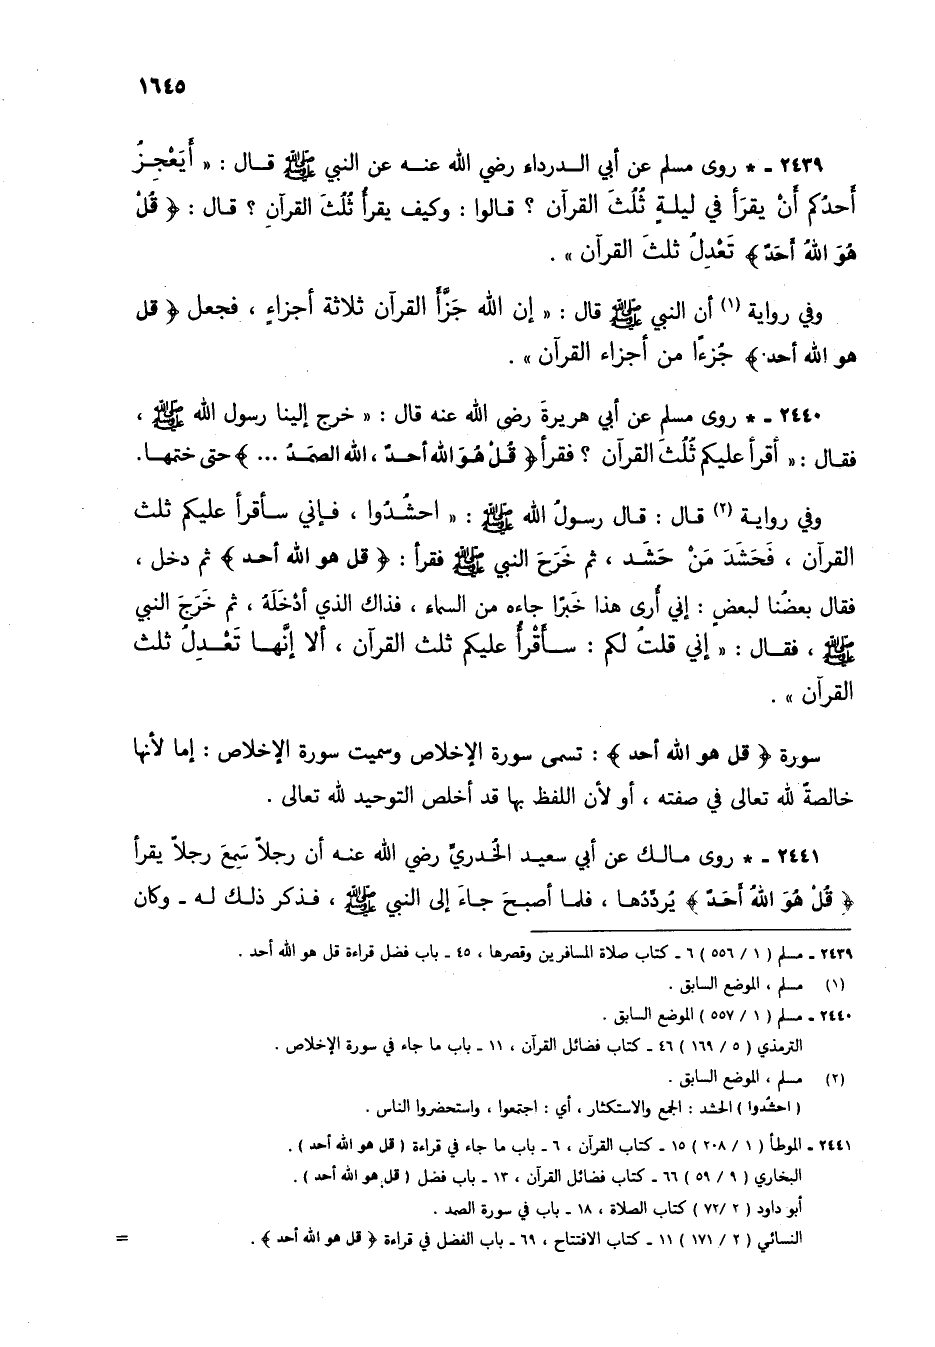 ١٦٤٥
٢٤٣٩ ـ * روى مسلم عن أبي الدرداء رضي الله عنه عن النبي ﷺ قال : « أَيَعْجِزُ
أَحدُكم أَنْ يقرَأ في ليلةٍ ثُلُثَ القرآن ؟ قالوا : وكيف يقرأُ ثُلُثَ القرآنِ ؟ قال : ﴿ قُلْ
هُوَ اللهُ أَحَدٌ ﴾ تَعْدِلُ ثلثَ القرآن » .
وفي رواية (١) أن النبي ﷺ قال : « إن الله جَزَّأَ القرآن ثلاثة أجزاءٍ ، فجعل ﴿ قل
هو الله أحد ﴾ جُزءًا من أجزاء القرآن » .
٢٤٤٠ ـ * روى مسلم عن أبي هريرةَ رضي الله عنه قال : « خرج إلينا رسول الله ﷺ ،
فقال : « أقرأ عليكم ثُلُثَ القرآن ؟ فقرأ ﴿ قُلْ هُوَ الله أحدٌ ، الله الصمَدُ ... ﴾ حتى ختمها .
وفي رواية (٢) قال : قال رسولُ الله ﷺ : « احشُدُوا ، فإني سأقرأ عليكم ثلث
القرآن ، فَحَشَدَ مَنْ حَشَد ، ثم خَرَجَ النبي ﷺ فقرأ : ﴿ قل هو الله أحد ﴾ ثم دخل ،
فقال بعضُنا لبعضٍ : إني أُرى هذا خَبَرًا جاءه من السماء ، فذاك الذي أدْخَلَهُ ، ثم خَرَجَ النبي
ﷺ ، فقال : « إني قلتُ لكم : سأَقْرأُ عليكم ثلث القرآن ، ألا إنَّها تَعْدِلُ ثلث
القرآن » .
سورة ﴿ قل هو الله أحد ﴾ : تسمى سورة الإخلاص وسميت سورة الإخلاص : إما لأنها
خالصةٌ لله تعالى في صفته ، أو لأن اللفظ بها قد أخلص التوحيد لله تعالى .
٢٤٤١ ـ * روى مالك عن أبي سعيد الخُدريِّ رضي الله عنه أن رجلاً سَمِعَ رجلاً يقرأ
﴿ قُلْ هُوَ اللهُ أَحَدٌ ﴾ يُردِّدُها ، فلما أصبحَ جاءَ إلى النبي ﷺ ، فذكر ذلك له ـ وكان
٢٤٣٩ ـ مسلم ( ١ / ٥٥٦ ) ٦ ـ كتاب صلاة المسافرين وقصرها ، ٤٥ ـ باب فضل قراءة قل هو الله أحد .
(١) مسلم ، الموضع السابق .
٢٤٤٠ ـ مسلم ( ١ / ٥٥٧ ) الموضع السابق .
الترمذي ( ٥ / ١٦٩ ) ٤٦ ـ كتاب فضائل القرآن ، ١١ ـ باب ما جاء في سورة الإخلاص .
(٢) مسلم ، الموضع السابق .
( احشُدوا ) الحَشد : الجمع والاستكثار ، أي : اجتمعوا ، واستحضروا الناس .
٢٤٤١ ـ الموطأ ( ١ / ٢٠٨ ) ١٥ ـ كتاب القرآن ، ٦ ـ باب ما جاء في قراءة ( قل هو الله أحد ) .
البخاري ( ٩ / ٥٩ ) ٦٦ ـ كتاب فضائل القرآن ، ١٣ ـ باب فضل ( قل هو الله أحد ) .
أبو داود ( ٢ / ٧٢ ) كتاب الصلاة ، ١٨ ـ باب في سورة الصمد .
النسائي ( ٢ / ١٧١ ) ١١ ـ كتاب الافتتاح ، ٦٩ ـ باب الفضل في قراءة ﴿ قل هو الله أحد ﴾ . =